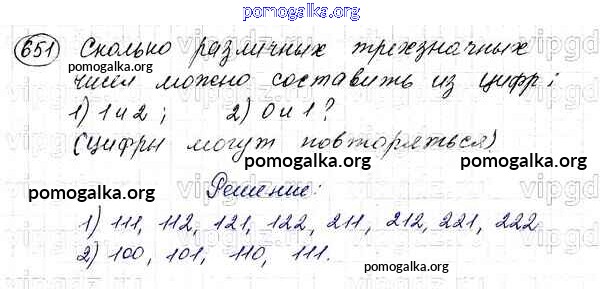 pomogalka.org
651 Сколько различных трехзначных
чисел можно составить из цифр:
pomogalka.org
1) 1 и 2 ; 2) 0 и 1 ?
(цифры могут повторяться)
pomogalka.org
pomogalka.org
Решение:
pomogalka.org
1) 111, 112, 121, 122, 211, 212, 221, 222
2) 100, 101, 110, 111.
pomogalka.org